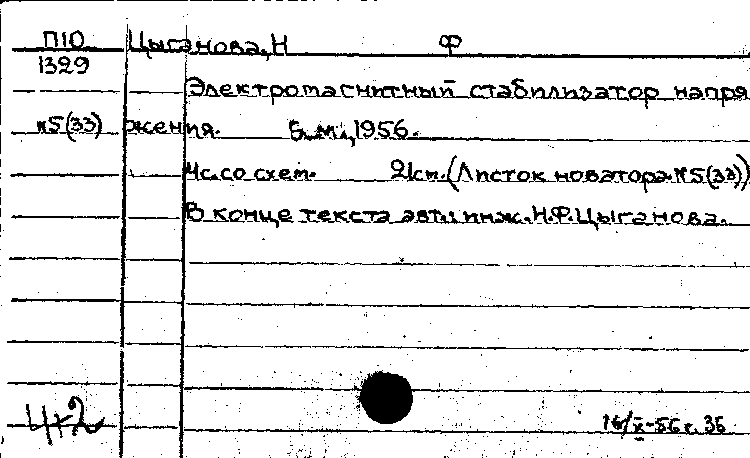 П10 Цыганова, Н Ф
1329
Электромагнитный стабилизатор напря
№5(33) жения. Б.м., 1956.
4с. со схем. 21см. (Листок новатора. №5(33))
В конце текста авт.: инж. Н.Ф. Цыганова.
4+2
16/X-56г. 36